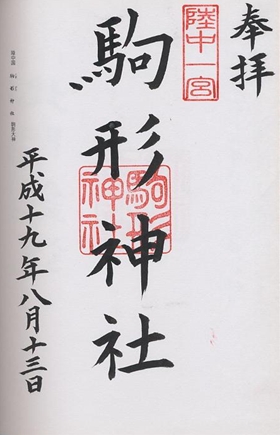 奉拝
陸中一宮
駒形神社
駒形神社
平成十九年八月十三日